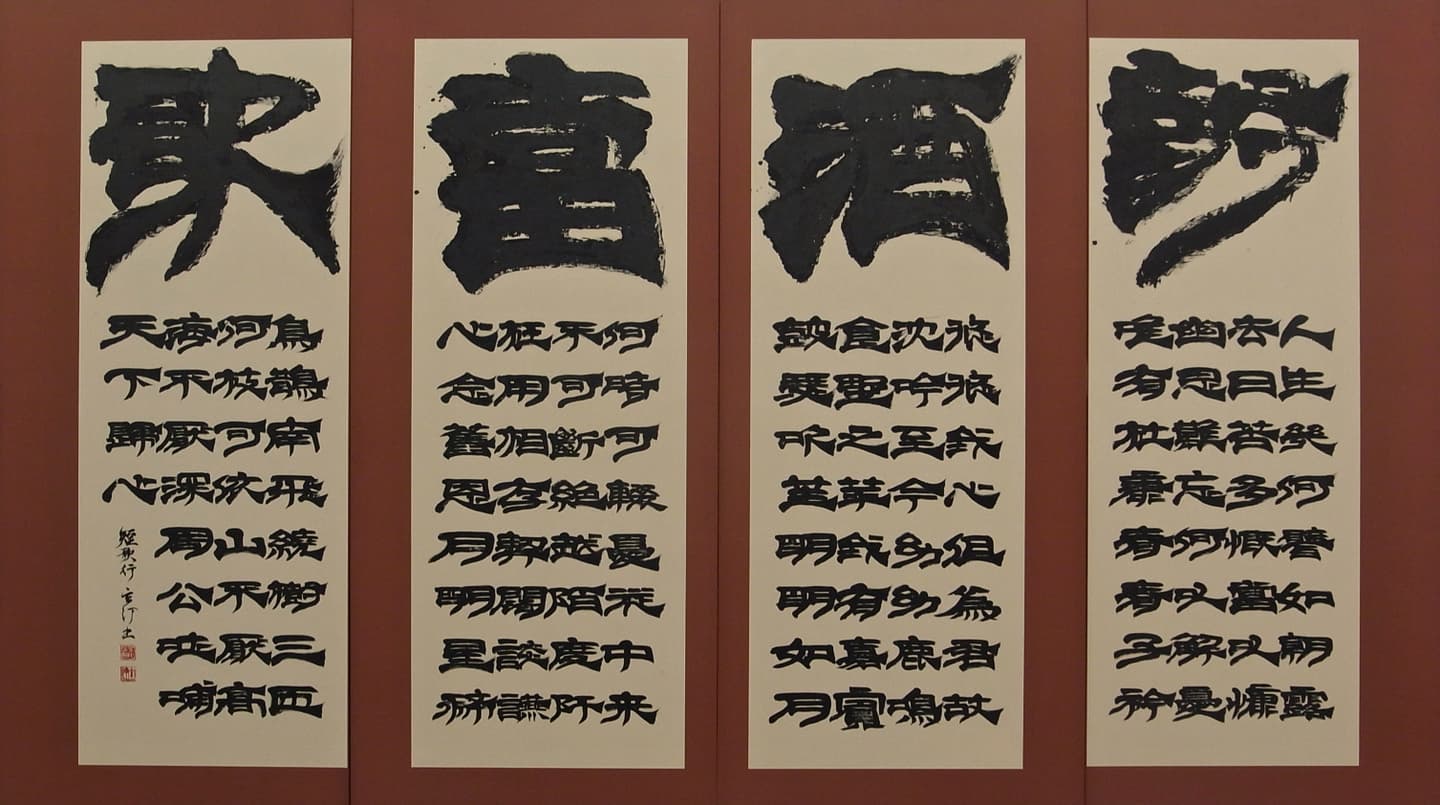 對
人生幾何譬如朝露
去日苦多慨當以慷
幽思難忘何以解憂
唯有杜康青青子衿
酒
悠悠我心但為君故
沈吟至今呦呦鹿鳴
食野之苹我有嘉賓
鼓瑟吹笙明明如月
當
何時可輟憂從中来
不可斷絕越陌度阡
枉用相存契闊談讌
心念舊恩月明星稀
歌
烏鵲南飛繞樹三匝
何枝可依山不厭高
海不厭深周公吐哺
天下歸心
短歌行